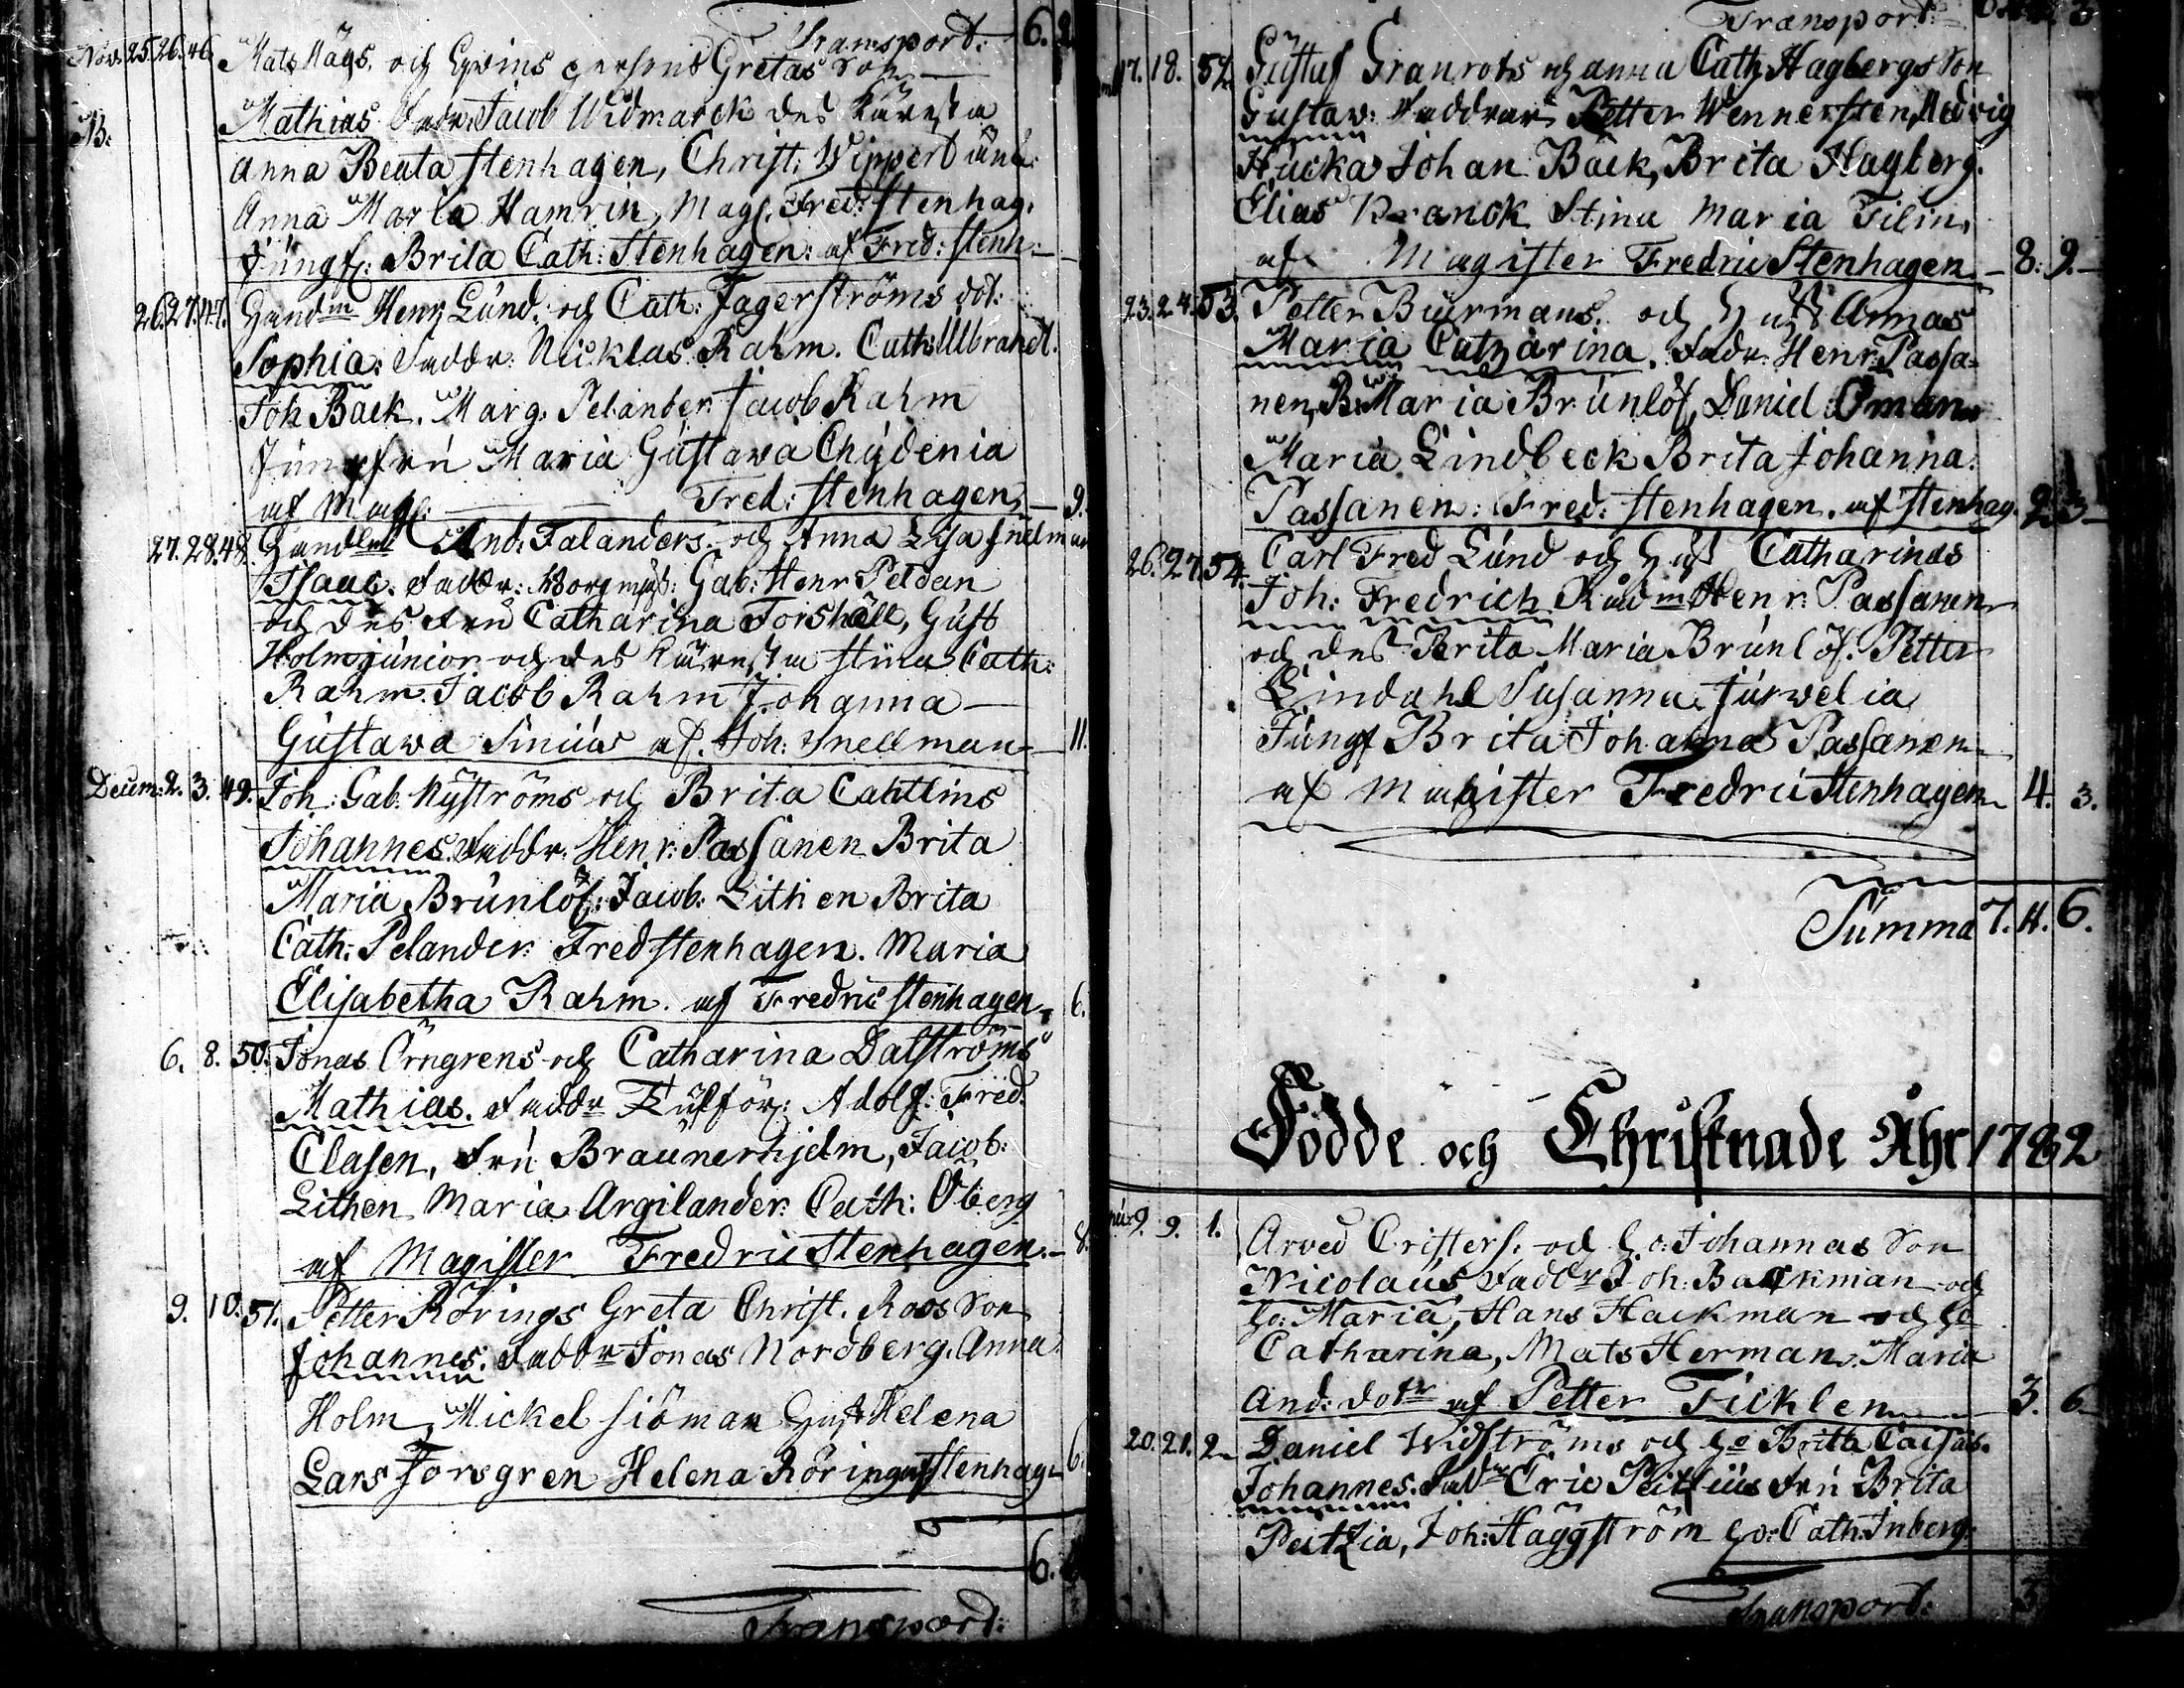 Transport: 6. 9
Nov. 25. 26. 46. Mats Mågs. och Gretas Son
NB. Mathias Faddr. Jacob Widmarck des Käresta
Anna Beata Stenhagen, Christ: Wippert
Anna Maria Hamrin, Mag. Fred: Stenhag.
Jungf: Brita Cath: Stenhagen: af Fred: Stenh:
26. 27. 47. Handm Henr Lund. och Cath: Fagerströms dot:
Sophia: Faddr: Nicklas Rahm. Cath: Ulbrandt.
Joh Back. Marg. Pelander Jacob Rahm
Jungfru Maria Gustava Chydenia
af Mag: Fred: Stenhagen, 9.
27. 28. 48. Handl And: Falanders. och Anna Lisa Snelman
Isaac. Faddr: Borgmäst: Gab: Henr Peldan
och des Fru Catharina Forshæll, Gust
Holm junior och des Käresta Stina Cath:
Rahm. Jacob Rahm Johanna
Gustava af. Joh: Snellman 11.
Decem: 2. 3. 49. Joh: Gab. Nyströms och Brita Cahtlins
Johannes. Faddr. Henr: Passanen Brita
Maria Brunlöf: Jacob. Lithen Brita
Cath: Pelander Fred Stenhagen. Maria
Elisabetha Rahm. af Fredric Stenhagen, 6.
6. 8. 50. Jonas Örngrens och Catharina Dalströms
Mathias. Faddr Tullför: Adolf: Fred.
Clasen, Fru Braunerhjelm, Jacob:
Lithen Maria Argilander Cath: Öberg
af Magister Fredric Stenhagen. 8.
9. 10. 51. Petter Rörings Greta Christ. Roos Son
Johannes. Faddr Jonas Nordberg. Anna
Holm, Mickel Siöman Hust Helena
Lars Forsgren Helena Röring af Stenhag. 6.
6.
Transport:
Transport:
17. 18. 52. Gustaf Granroths och Anna Cath Hagbergs Son
Gustav: Faddrar Petter Wennersten, Hedvig
Hucka Johan Bäck, Brita Hagberg.
Elias Branck Stina Maria Filin.
af Magister Fredric Stenhagen. 8. 9.
23. 24. 53. Petter Buurmans. och Hust Annas
Maria Catharina. Faddr. Henr: Passa-
nen, B: Maria Brunlöf, Daniel Öman
Maria Lindbeck Brita Johanna.
Passanen: Fred: Stenhagen. af Stenhag. 2. 3
26. 27. 54. Carl Fred Lund och Hust Catharinas
Joh: Fredrich Rådm Henr: Passanen
och des Brita Maria Brunlöf. Petter
Lindahl Susanna Jurvelia
Jungf Brita Johanna Passanen
af Magister Fredric Stenhagen 4. 3.
Summa 7. 4. 6.
Födde och Christnade Åhr 1782
9. 9. 1. Arved Cristers. och ho: Johannas Son
Nicolaus Faddr Joh: Backman och
ho: Maria, Hans Hackman och ho
Catharina, Mats Herman. Maria
And: dotr af Petter Ficklen 3. 6
20. 21. 2. Daniel Widströms och ho Brita Caisas.
Johannes. Fadr Eric Peitzius Fru Brita
Peitzia, Joh: Häggström ho: Cath: Inberg
Transport: 3